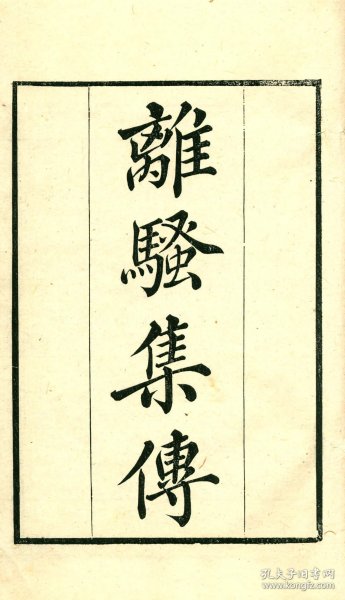 離騷集傳
孔夫子旧书网
www.kongfz.com